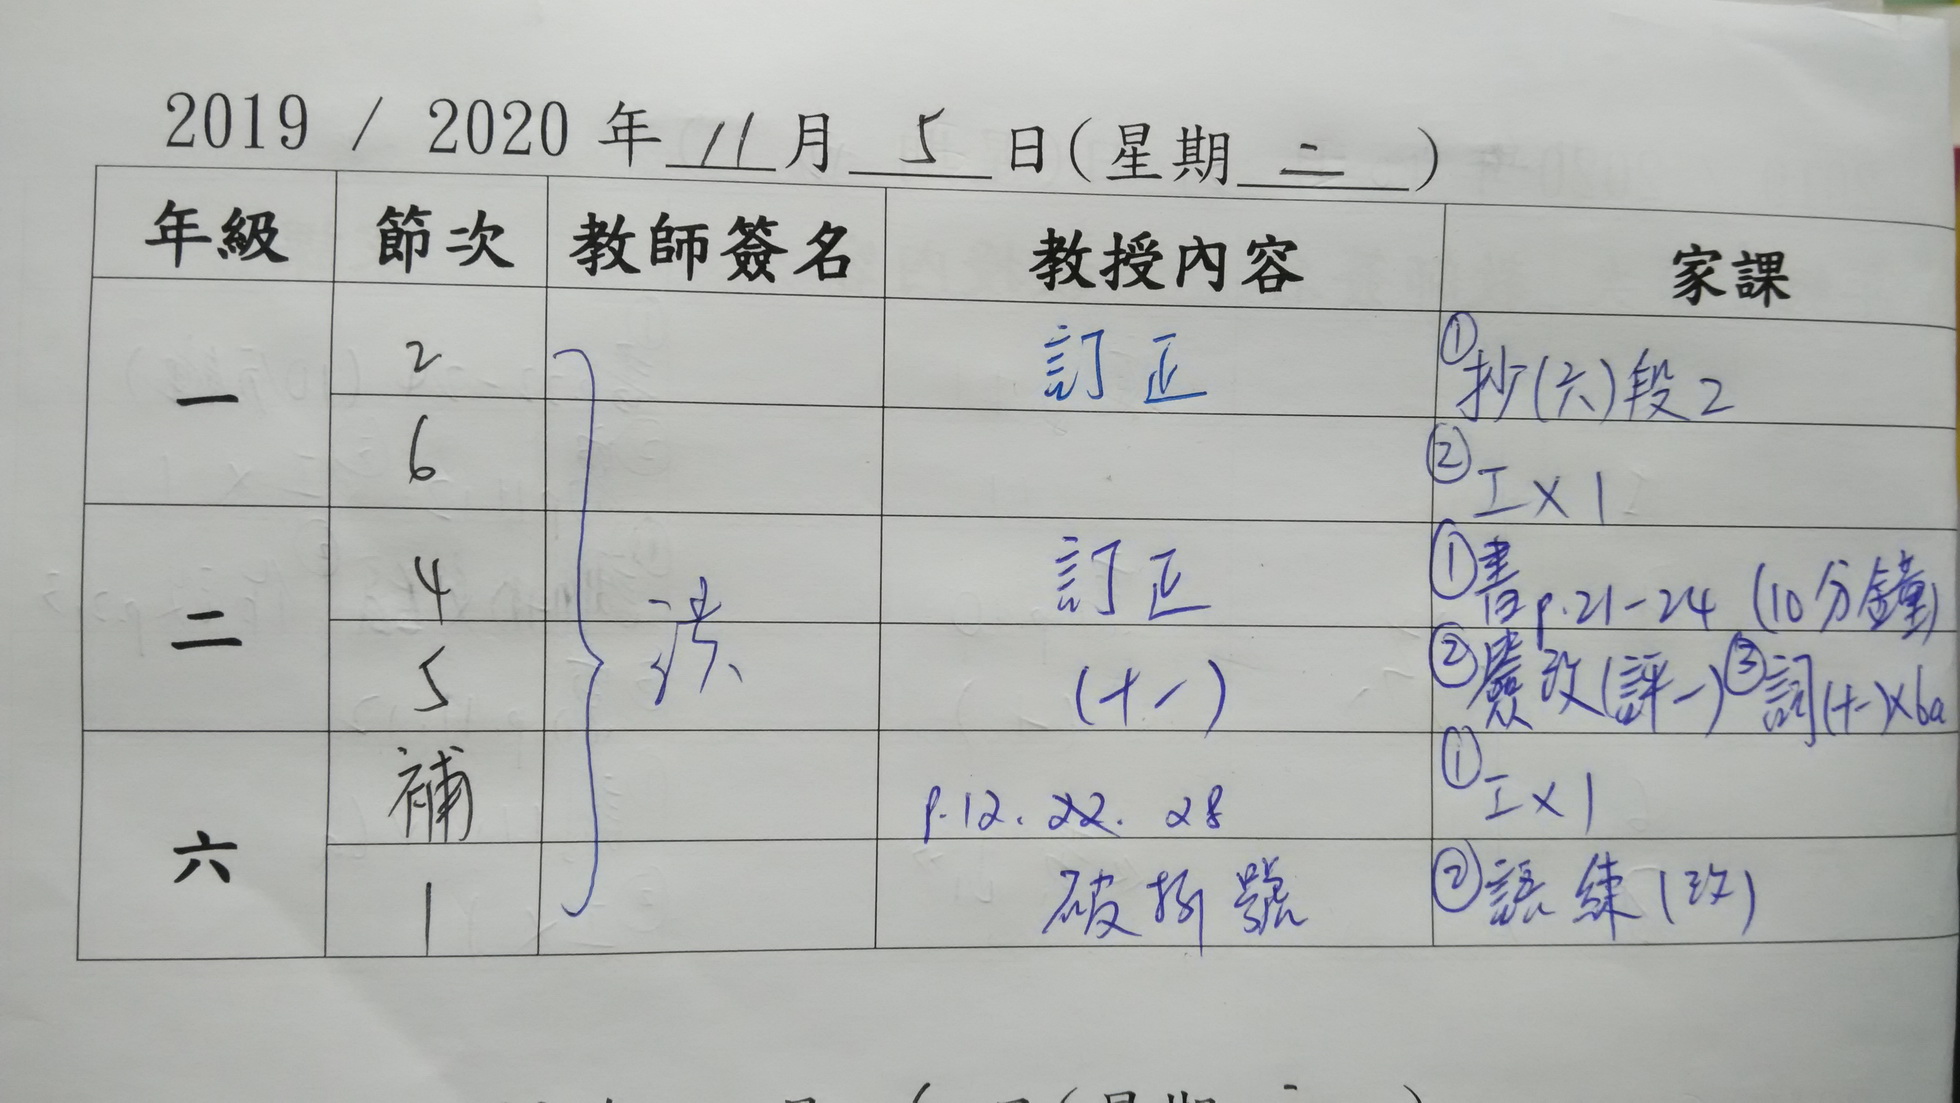 2019 / 2020 年 11 月 5 日(星期 二 )
年級 節次 教師簽名 教授內容 家課
一 2 訂正 ①抄(六)段2
6 ②工×1
二 4 訂正 ①書p.21-24 (10分鐘)
5 (十一) ②改(評一)③詞(十一)×6a
六 補 p.12. 22. 28 ①工×1
1 破折號 ②語練(改)